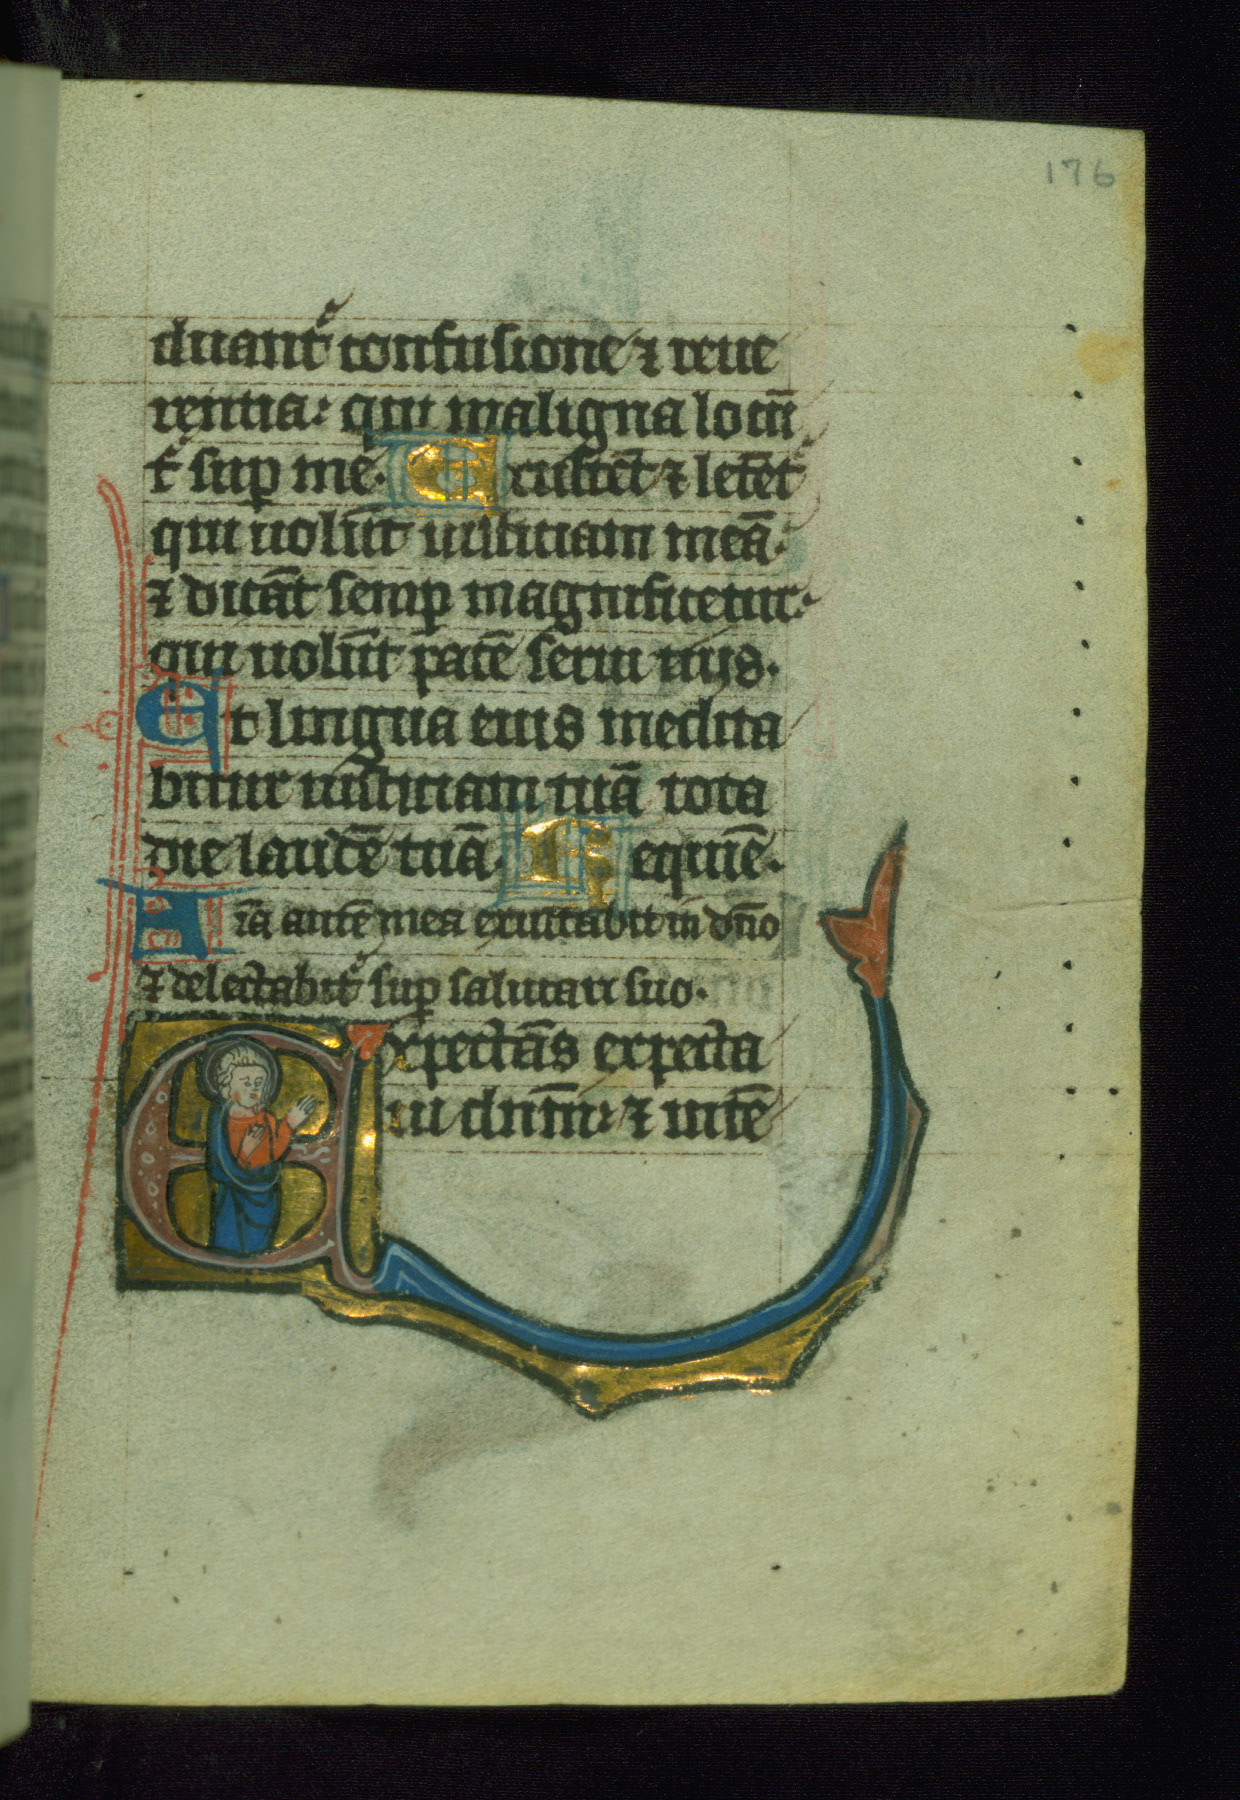 176
duant᷑ confusione ⁊ reue
rentia: qui maligna locū
t᷑ sup me. Exultēt ⁊ letēt᷑
qui uolūt iusticiam meā.
⁊ dicāt semp magnificetur.
qui uolūt pacē serui eius.
Et lingua eius medita
bitur iusticiam tuā tota
die laudē tuā. Requiē.
Aīa autē mea exultabit in dn̄o
⁊ delectabit᷑ sup salutari suo.
Expectās expecta
ui dn̄m: ⁊ intē